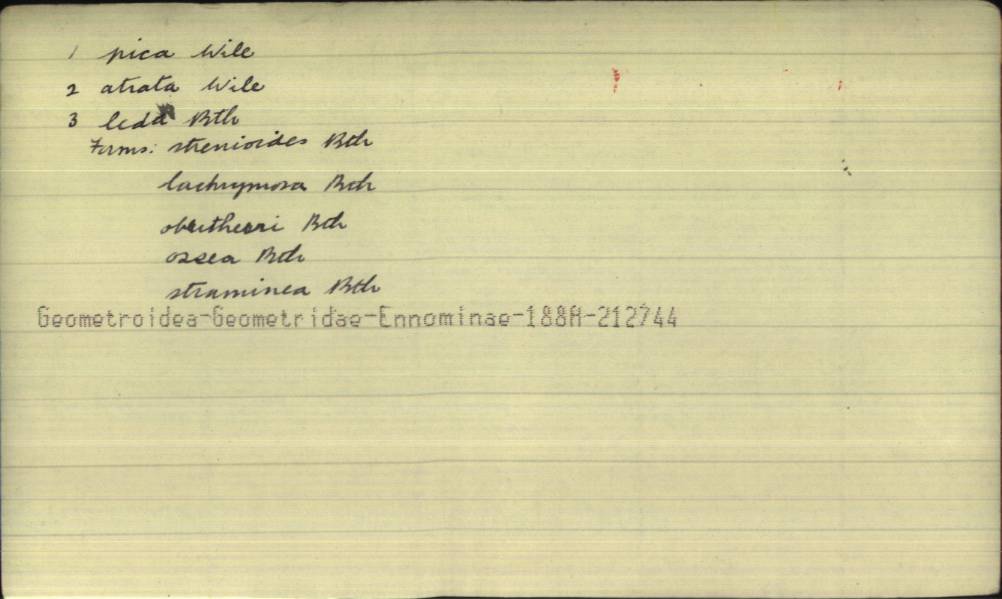 1 pica Wile
2 atrata Wile
3 leda Bth
Forms: strenioides Bth
lachrymosa Bth
obutheari Bth
ossea Bth
straminea Bth
Geometroidea-Geometridae-Ennominae-188A-212744